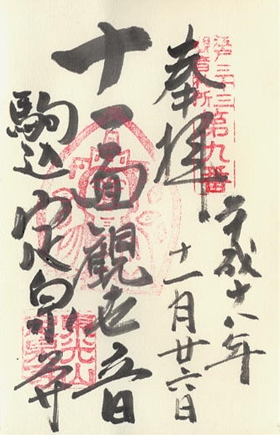 江戸三十三
観音札所
第九番
奉拝
平成十八年
十一月廿六日
十一面觀世音
駒込 定泉寺
東光山
定泉寺